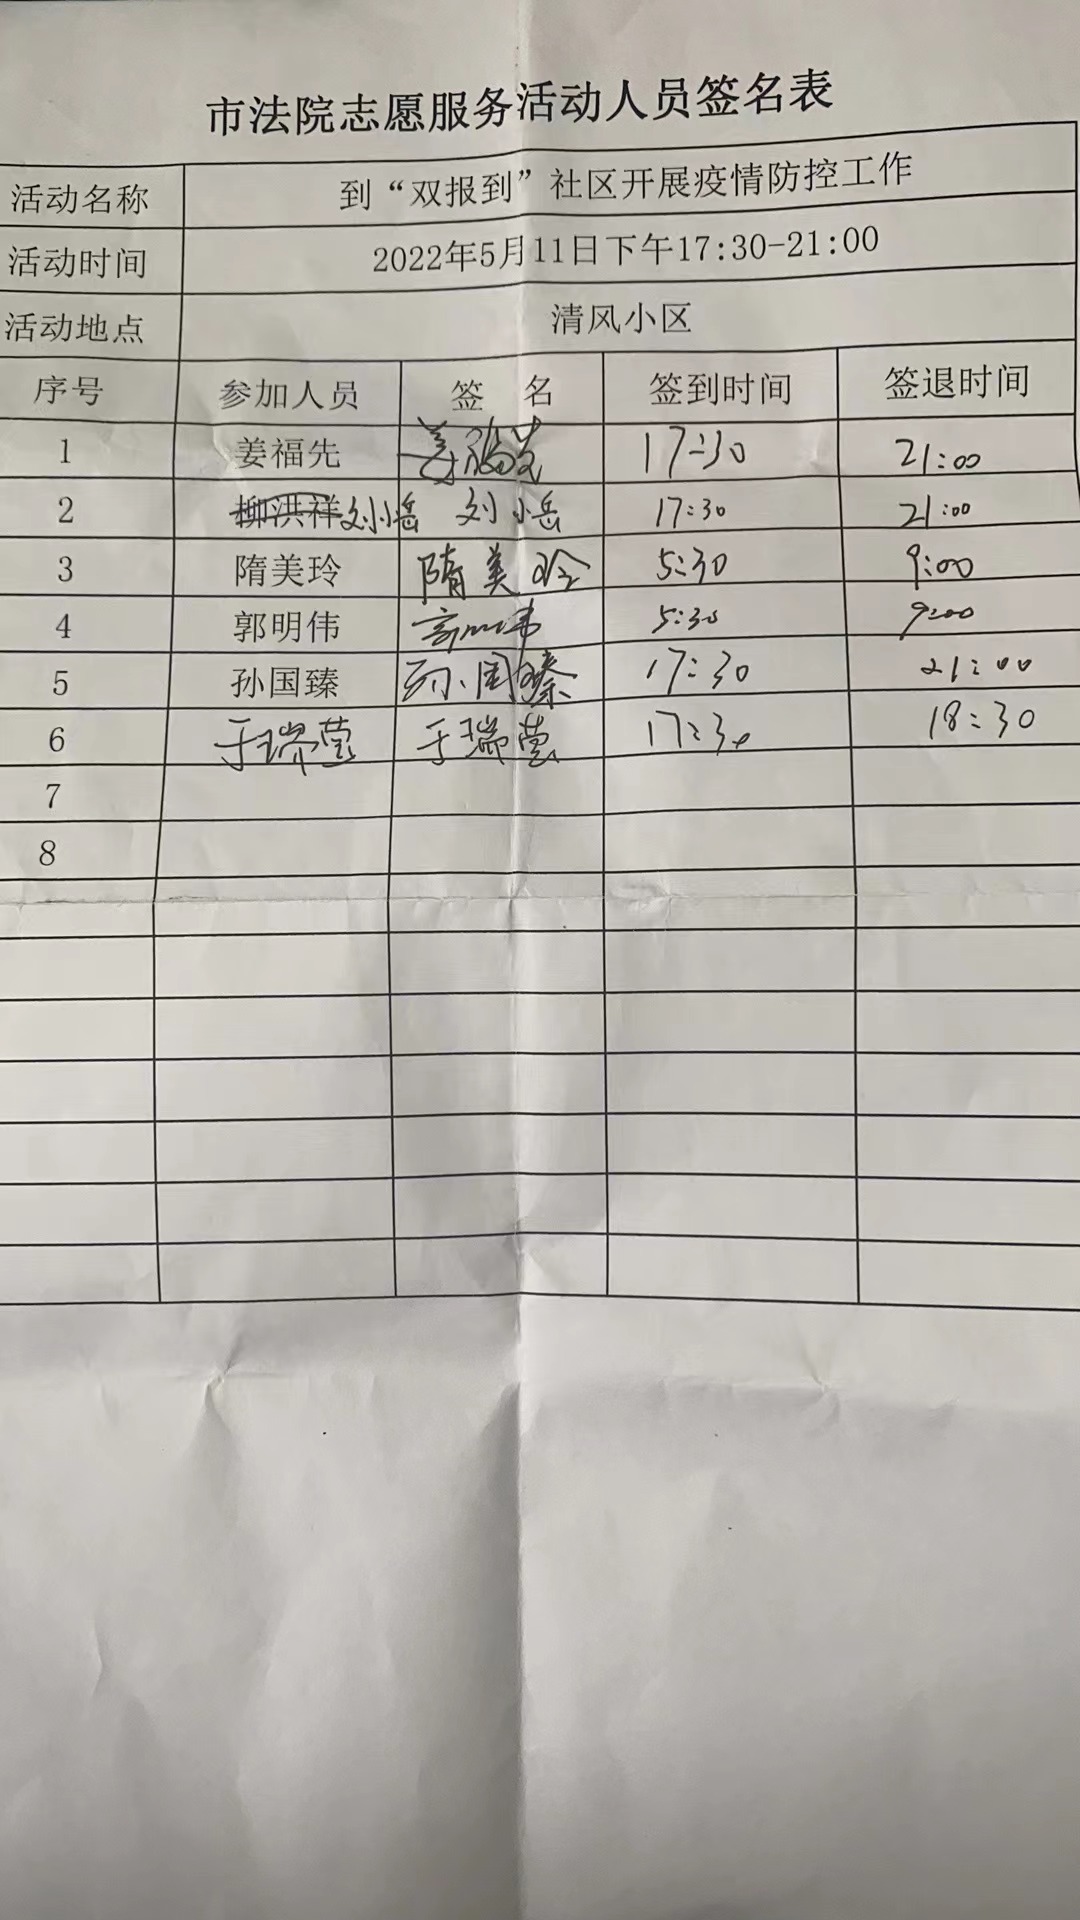 市法院志愿服务活动人员签名表
活动名称 到“双报到”社区开展疫情防控工作
活动时间 2022年5月11日下午17:30-21:00
活动地点 清风小区
序号 参加人员 签 名 签到时间 签退时间
1 姜福先 姜福先 17:30 21:00
2 柳洪祥 刘小岳 刘小岳 17:30 21:00
3 隋美玲 隋美玲 5:30 9:00
4 郭明伟 5:30 9:00
5 孙国臻 孙国臻 17:30 21:00
6 于瑞莹 于瑞莹 17:30 18:30
7
8